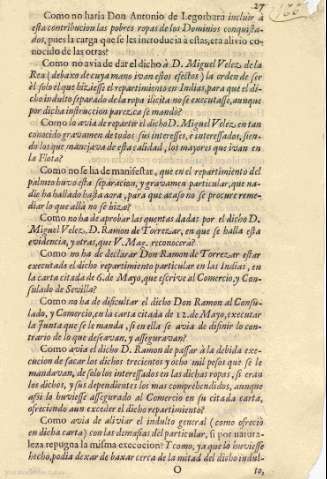 27
Como no haria Don Antonio de Legorburu incluir à
esta contribucion las pobres ropas de los Dominios conquista-
dos, pues la carga que se les introducia à estas, era alivio co-
nocido de las otras?
Como no avia de dar el dicho à D. Miguel Velez de la
Rea (debaxo de cuya mano ivan estos efectos) la orden de ser
èl solo el que hiziesse el repartimiento en Indias, para que el di-
cho indulto separado de la ropa ilicita no se executasse, aunque
por dicha instruccion parezca se mandò?
Como lo avia de repartir el dicho D. Miguel Velez, en tan
conocido gravamen de todos sus interesses, è interessados, sien-
do los que manejava de esta calidad, los mayores que ivan en
la Flota?
Como no se ha de manifestar, que en el repartimiento del
palmeo huvo esta separacion, y gravamen particular, que na-
die ha hallado hasta aora, para que acaso no se procure reme-
diar lo que allà no se hizo?
Como no ha de aprobar las quentas dadas por el dicho D.
Miguel Velez, D. Ramon de Torrezar, en que se halla esta
evidencia, y otras, que V. Mag. reconocerà?
Como no ha de declarar Don Ramon de Torrezar estar
executado el dicho repartimiento particular en las Indias, en
la carta citada de 6. de Mayo, que escrive al Comercio, y Con-
sulado de Sevilla?
Como no ha de dificultar el dicho Don Ramon al Consu-
lado, y Comercio, en la carta citada de 12. de Mayo, executar
la Junta que se le manda, si en ella se avia de difinir lo con-
trario de lo que desseavan, y asseguravan?
Como avia el dicho D. Ramon de passar à la debida exe-
cucion de sacar los dichos trecientos y ocho mil pesos que se le
mandavan, de solo los interessados en las dichas ropas, si eran
los dichos, y sus dependientes los mas comprehendidos, aunque
assi lo huviesse assegurado al Comercio en su citada carta,
ofreciendo aun exceder el dicho repartimiento?
Como avia de aliviar el indulto general (como ofreciò
en dicha carta) con las demasias del particular, si por natura-
leza repugna la misma execucion? Y como, ya que lo huviesse
hecho, podia dexar de baxar cerca de la mitad del dicho indul-
O
to,